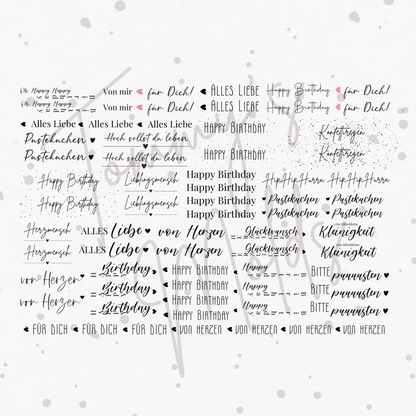 Oh Happy Happy Von mir für Dich! ALLES LIEBE Happy Birthday für Dich!
Oh Happy Happy Von mir für Dich! ALLES LIEBE Happy Birthday für Dich!
Alles Liebe Alles Liebe HAPPY BIRTHDAY Konfettiregen
Pustekuchen Hoch sollst du leben
Pustekuchen Hoch sollst du leben HAPPY BIRTHDAY Konfettiregen
Happy Birthday Lieblingsmensch Happy Birthday HipHipHurra HipHipHurra
Happy Birthday
Happy Birthday Lieblingsmensch Happy Birthday Pustekuchen Pustekuchen
Happy Birthday Pustekuchen Pustekuchen
Herzmensch ALLES Liebe von Herzen Glückwunsch Kleinigkeit
Herzmensch ALLES Liebe von Herzen Glückwunsch Kleinigkeit
von Herzen Birthday HAPPY BIRTHDAY Happy BITTE puuuusten
von Herzen Birthday HAPPY BIRTHDAY Happy BITTE puuuusten
FÜR DICH FÜR DICH FÜR DICH VON HERZEN VON HERZEN VON HERZEN VON HERZEN
Tommy's